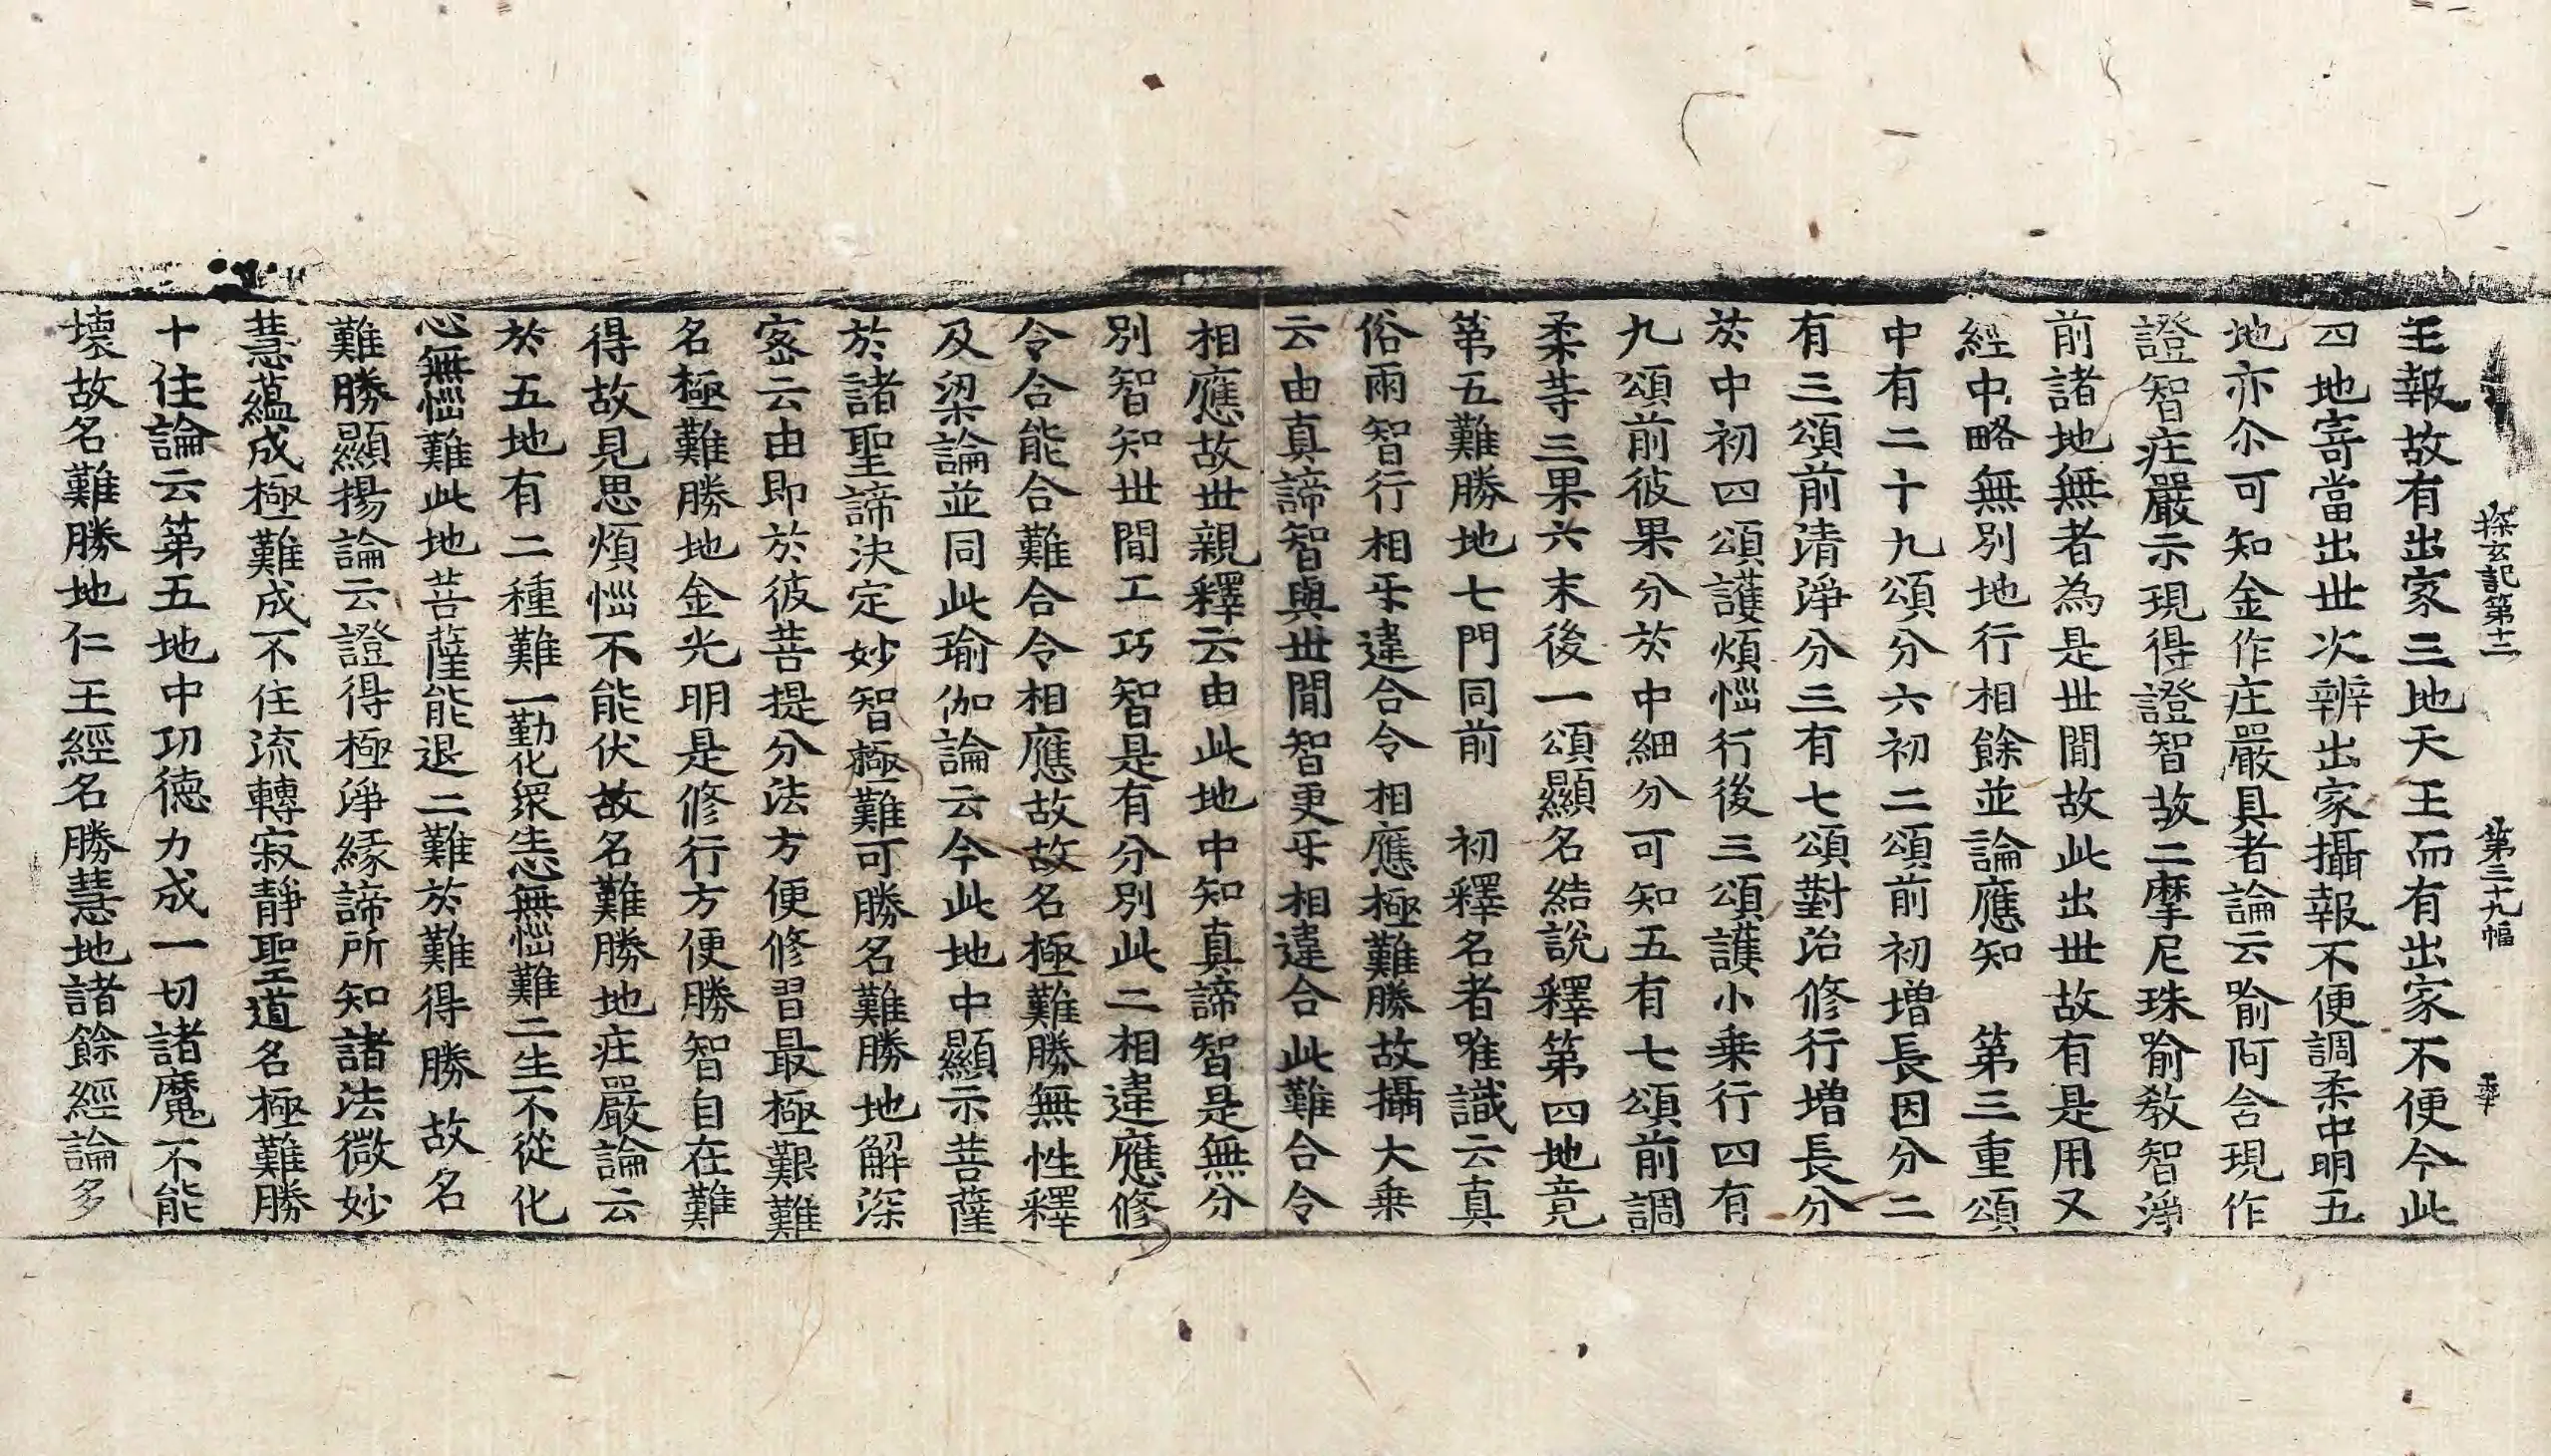 探玄記第十二　第三十九幅　華
王報故有出家三地天王而有出家不便今此
四地寄當出世次辨出家攝報不便調柔中明五
地亦尒可知金作庄嚴具者論云喻阿含現作
證智庄嚴示現得證智故二摩尼珠喻教智淨
前諸地無者為是世間故此出世故有是用又
經中略無別地行相餘並論應知　第三重頌
中有二十九頌分六初二頌前初增長因分二
有三頌前清淨分三有七頌對治修行增長分
於中初四頌護煩惱行後三頌護小乗行四有
九頌前彼果分於中細分可知五有七頌前調
柔等三果六末後一頌顯名結說釋第四地竟
第五難勝地七門同前　初釋名者唯識云真
俗兩智行相㸦違合令相應極難勝故攝大乗
云由真諦智與世間智更㸦相違合此難合令
相應故世親釋云由此地中知真諦智是無分
別智知世間工巧智是有分別此二相違應修
令合能合難合令相應故故名極難勝無性釋
及梁論並同此瑜伽論云今此地中顯示菩薩
於諸聖諦決定妙智極難可勝名難勝地解深
密云由即於彼菩提分法方便修習最極艱難
名極難勝地金光明是修行方便勝智自在難
得故見思煩惱不能伏故名難勝地庄嚴論云
於五地有二種難一勤化眾生心無惱難二生不從化
心無惱難此地菩薩能退二難於難得勝故名
難勝顯揚論云證得極淨緣諦所知諸法微妙
慧蘊成極難成不住流轉寂靜聖道名極難勝
十住論云第五地中功徳力成一切諸魔不能
壞故名難勝地仁王經名勝慧地諸餘經論多